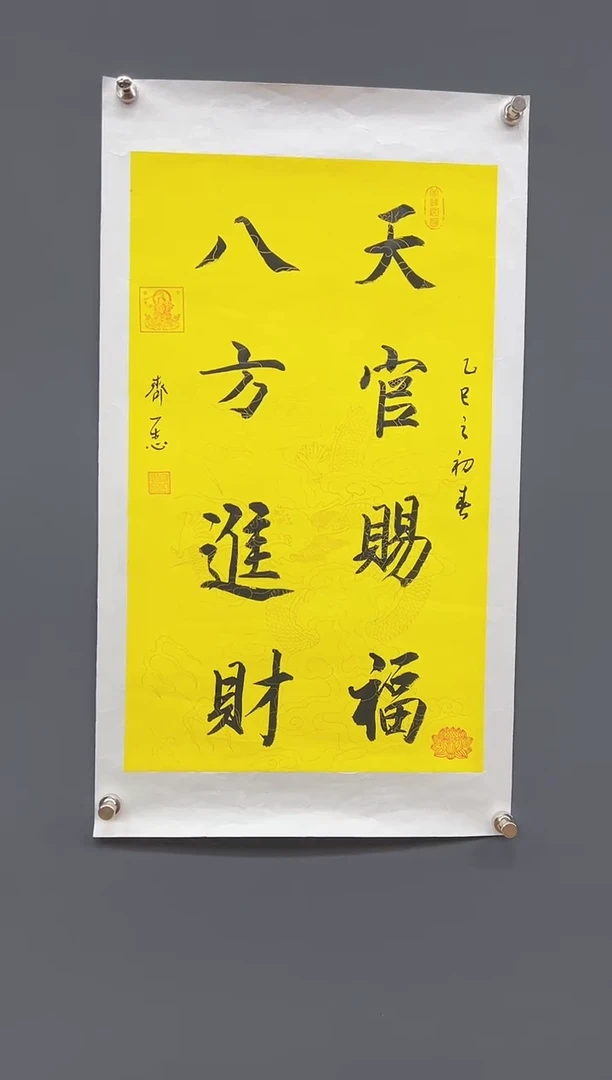 乙巳之初春
天官賜福
八方進財
齊一